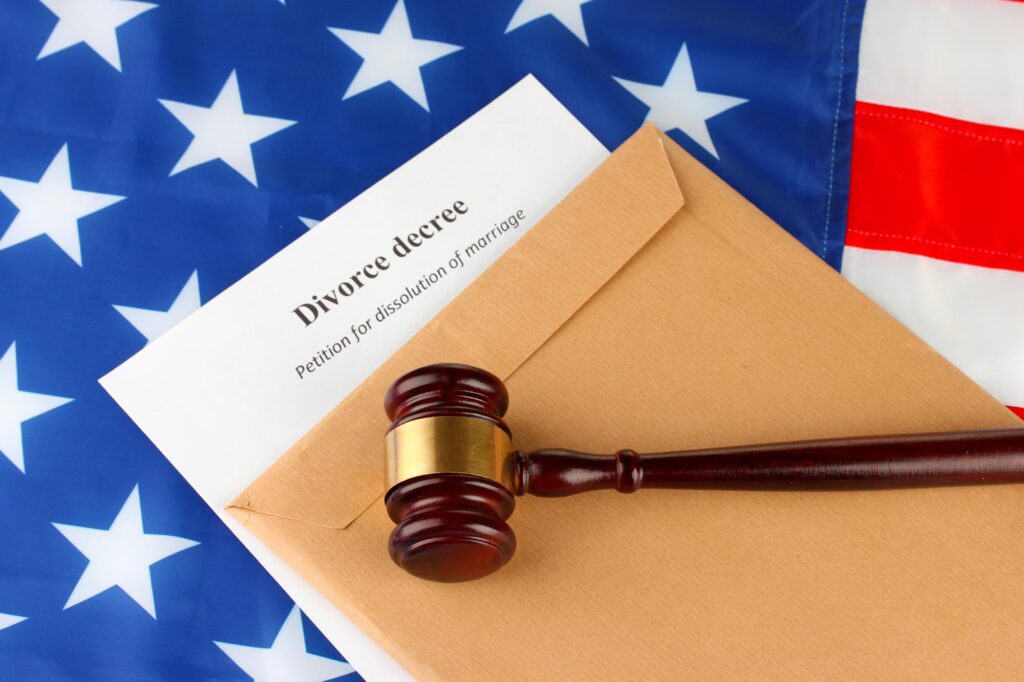 Divorce decree
Petition for dissolution of marriage